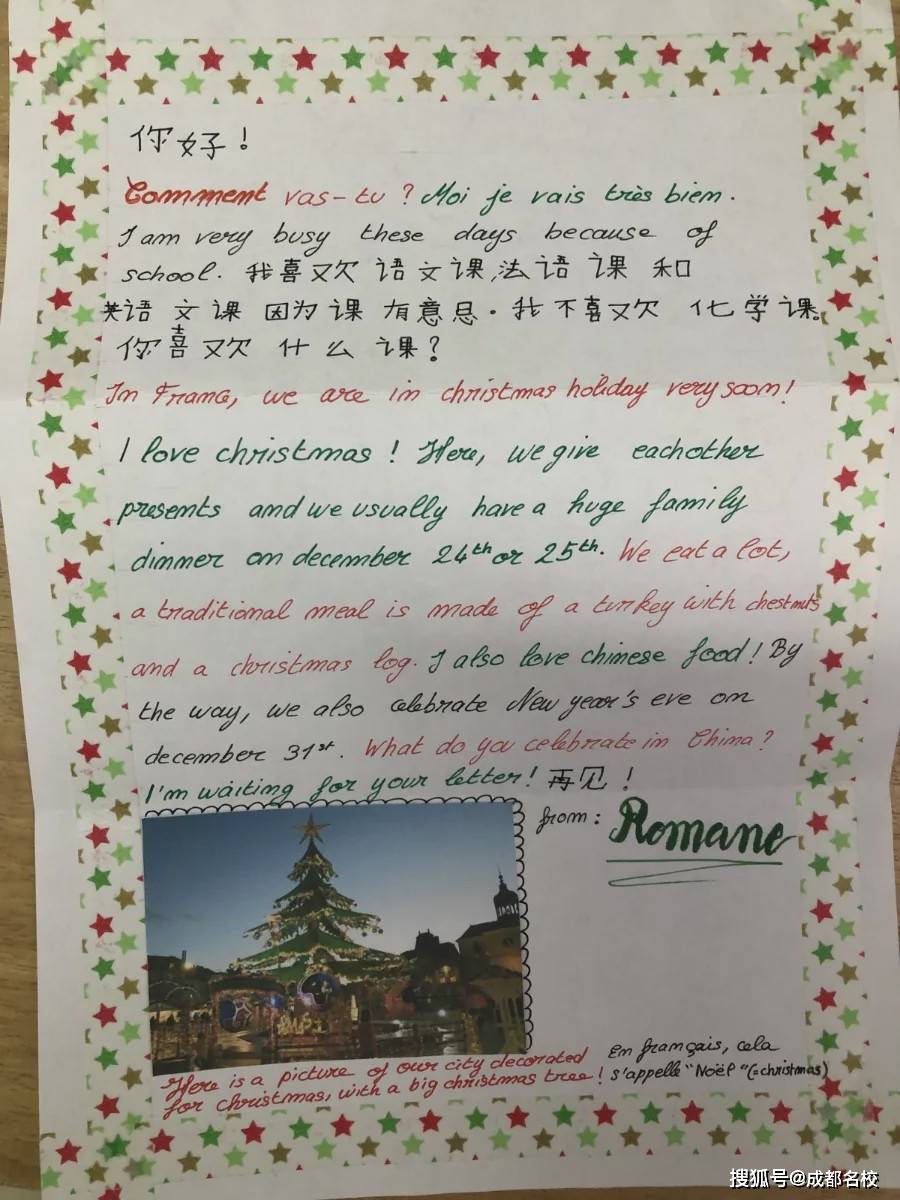 你好！
Comment vas-tu ? Moi je vais très bien.
I am very busy these days because of
school. 我喜欢 语文课,法语 课 和
英语 文 课 因为 课 有意思。我 不喜欢 化学课。
你喜欢 什么 课？
In France, we are in christmas holiday very soon!
I love christmas ! Here, we give eachother
presents and we usually have a huge family
dinner on december 24th or 25th. We eat a lot,
a traditional meal is made of a turkey with chestnuts
and a christmas log. I also love chinese food! By
the way, we also celebrate New year's eve on
december 31st. What do you celebrate in China?
I'm waiting for your letter! 再见！
from : Romane
Here is a picture of our city decorated
for christmas, with a big christmas tree!
En français, cela
s'appelle "Noël" (=christmas)
搜狐号@成都名校